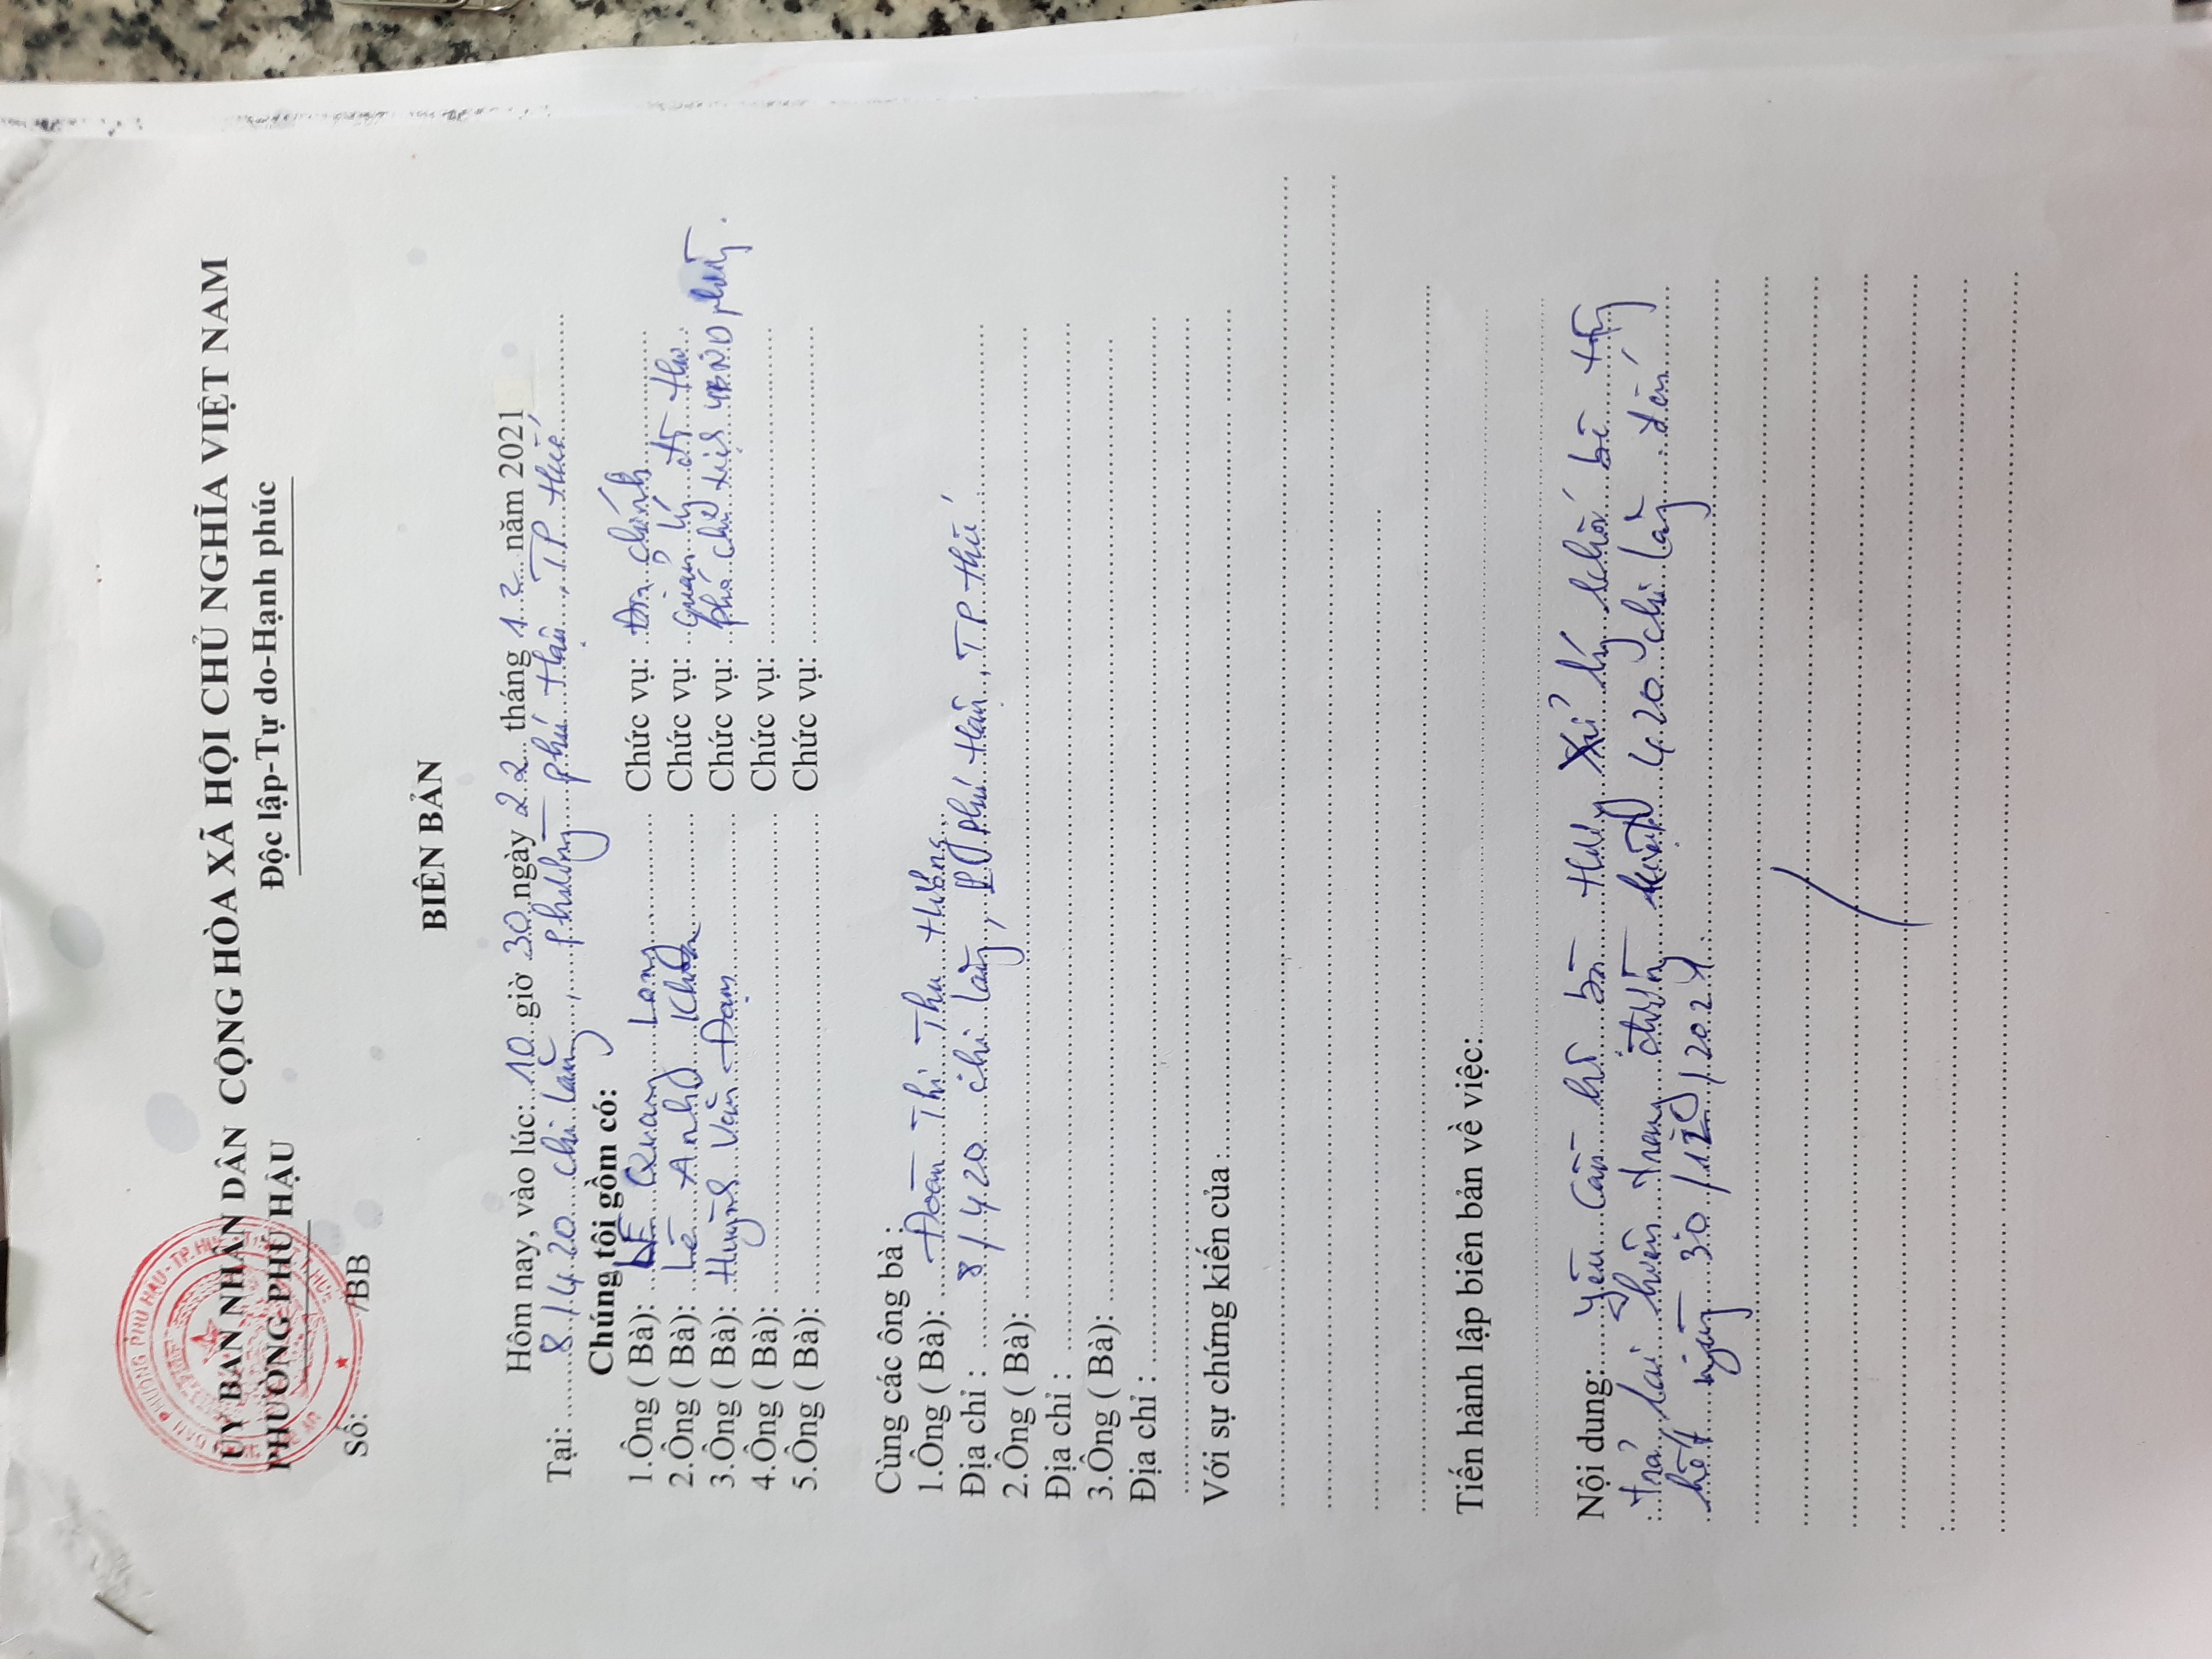 ỦY BAN NHÂN DÂN CỘNG HÒA XÃ HỘI CHỦ NGHĨA VIỆT NAM
PHƯỜNG PHÚ HẬU Độc lập-Tự do-Hạnh phúc
Số: /BB
BIÊN BẢN
Hôm nay, vào lúc: 10 giờ 30 ngày 22 tháng 12 năm 2021
Tại: 8/420 chi Lăng, phường phú Hậu, TP Huế
Chúng tôi gồm có:
1.Ông ( Bà): LÊ Quang Long Chức vụ: Địa chính
2.Ông ( Bà): Lê Anh Khoa Chức vụ: Quản lý đô thị
3.Ông ( Bà): Huỳnh Văn Đạm Chức vụ: phó chủ tịch UBND phường.
4.Ông ( Bà): Chức vụ:
5.Ông ( Bà): Chức vụ:
Cùng các ông bà :
1.Ông ( Bà): Đoàn Thị Thu Hương
Địa chỉ : 8/420 chi Lăng, P phú Hậu, TP Huế
2.Ông ( Bà):
Địa chỉ :
3.Ông ( Bà):
Địa chỉ :
Với sự chứng kiến của :
Tiến hành lập biên bản về việc:
Nội dung: yêu cầu bà Xử lý khối bê tông
trả lại hiện trạng đường 420 chi Lăng đến
hết ngày 30/12/2021.